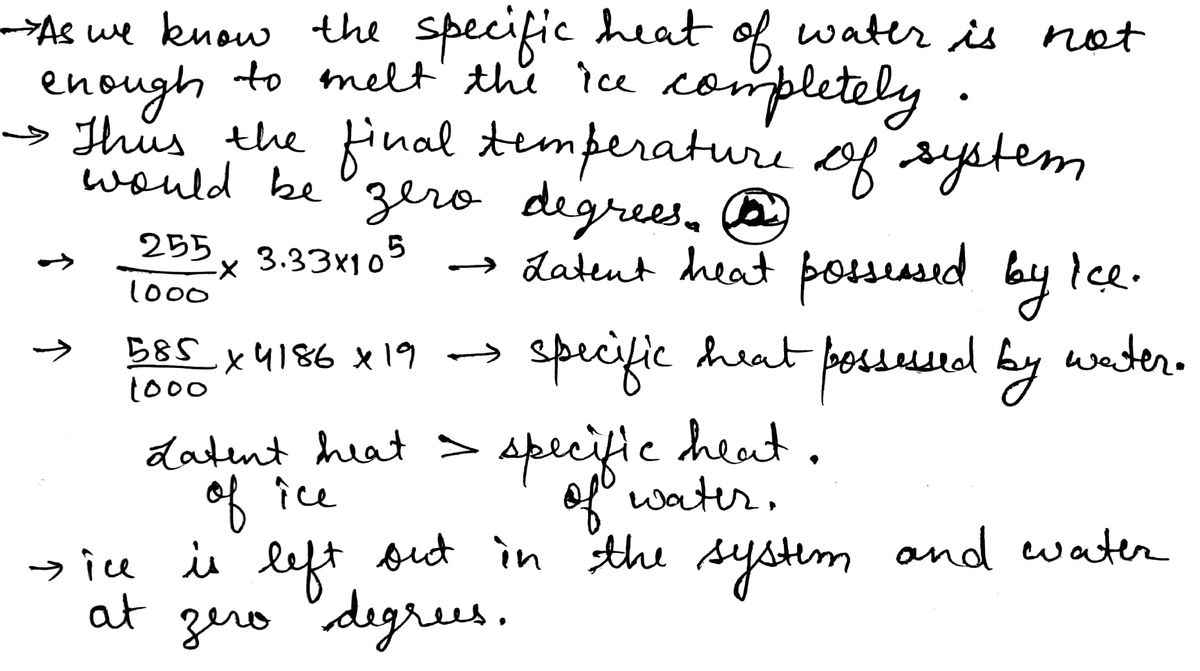 →As we know the specific heat of water is not
enough to melt the ice completely.
→ Thus the final temperature of system
would be zero degrees. (a)
→ 255/1000 × 3.33×10⁵ → Latent heat possessed by ice.
→ 585/1000 × 4186 × 19 → specific heat possessed by water.
Latent heat > specific heat.
of ice of water.
→ ice is left out in the system and water
at zero degrees.